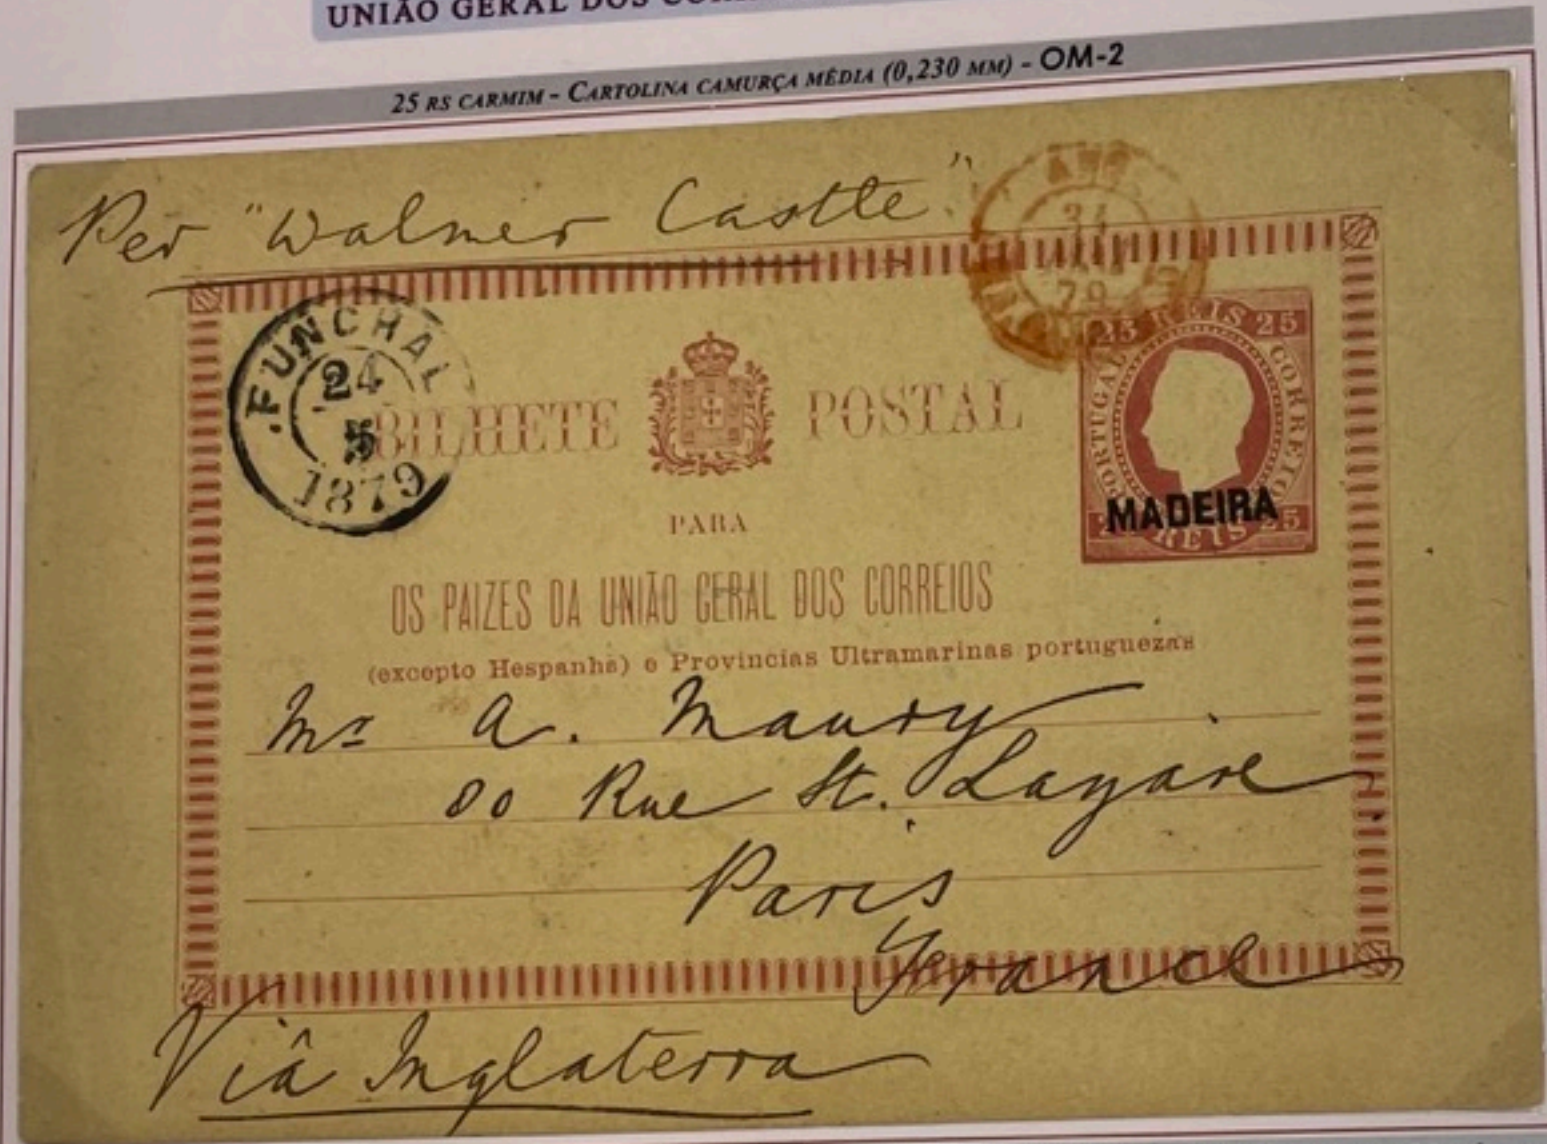 UNIÃO GERAL DOS
25 RS CARMIM – CARTOLINA CAMURÇA MÉDIA (0,230 MM) - OM-2
Per "Walmer Castle"
FUNCHAL
24
5
1879
ANG.
31
79
25 REIS 25
PORTUGAL
CORREIO
MADEIRA
REIS 25
BILHETE POSTAL
PARA
OS PAIZES DA UNIÃO GERAL DOS CORREIOS
(excepto Hespanha) e Provincias Ultramarinas portuguezas
Mr A. Maury
80 Rue St. Lazare
Paris
France
Viâ Inglaterra